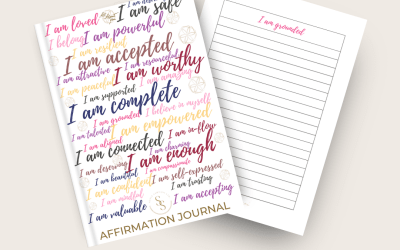 I am loved I am safe
I belong I am powerful
I am resilient
I am accepted
I am attractive I am resourceful
I am worthy
I am peaceful I am amazing
I am supported
I am complete
I am grounded I believe in myself
I am talented I am empowered
I am aligned
I am connected I am in-flow
I am charming
I am deserving I am enough
I am beautiful I am compassionate
I am confident I am self-expressed
I am mindful I am trusting
I am valuable I am accepting
S
S
AFFIRMATION JOURNAL
I am grounded